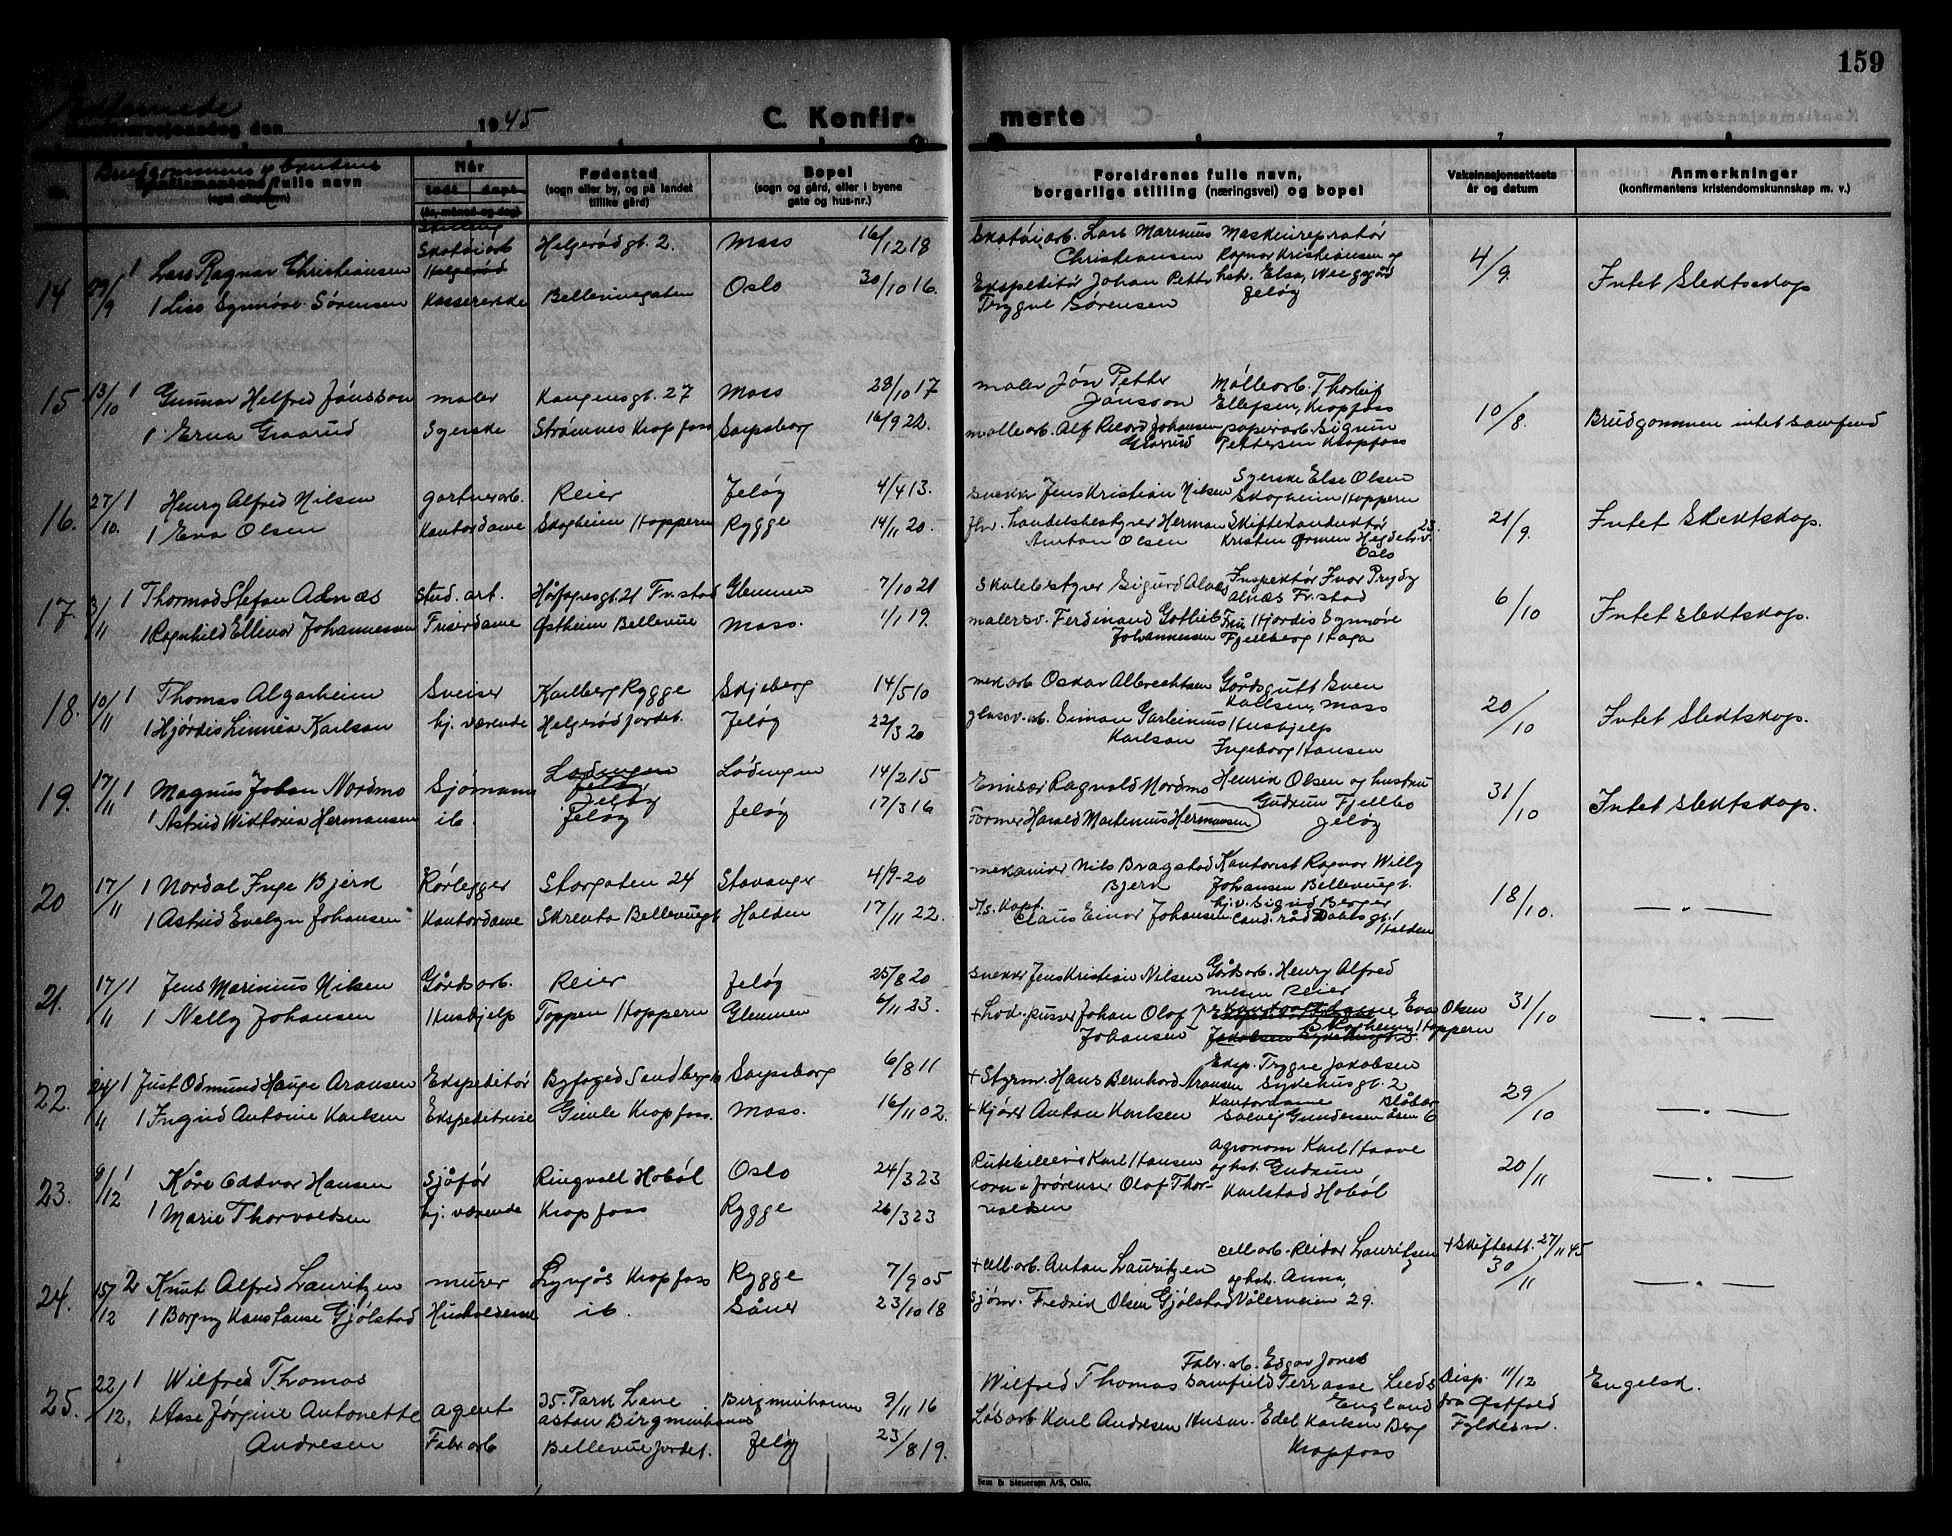 159
1945
C. Konfir-
merte
Brudgommens og brudens
fulle navn
Når
født døpt
(år, måned og dag)
Stilling
Fødested
(sogn eller by, og på landet
tillike gård)
Bopel
(sogn og gård, eller i byene
gate og hus-nr.)
Foreldrenes fulle navn,
borgerlige stilling (næringsvei) og bopel
Vaksinasjonsattests
år og datum
Anmerkninger
(konfirmantens kristendomskunnskap m. v.)
14 29/9 1 Lars Ragnar Christiansen Skotøiarb Helgerødgt. 2. Moss 16/12 18 Skotøiarb. Lars Marinius Christiansen Ragnar Kristiansen og 4/9 Intet Slektskap
1 Liss Synnøve Sørensen Kassererske Bellevuegaten Oslo 30/10 16. Ekspeditør Johan Petter Trygve Sørensen hst. Elsa, Jeløy
15 13/10 1 Gunnar Helfred Jönsson maler Kongensgt. 27 Moss 28/10 17 maler Jön Petter Jönsson Møllearb. Thorleif Ellefsen, Kropfoss 10/8. Brudgommen intet samfund
1 Erna Graarud Syerske Strømnes Kropfoss Sarpsborg 16/9 22. mollearb. Alf Ricard Johansen Graarud papirarb. Sigrun Pettersen Kropfoss
16. 27/10. 1 Henry Alfred Nilsen gartnerarb. Reier Jeløy 4/4 13. Snekker Jens Kristian Nilsen Syerske Else Olsen Skogheim Hoppern 21/9. Intet Slektskap.
1 Eva Olsen Kontordame Skogheim Hoppern Rygge 14/11 20. fhv. handelsbestyrer Herman Anton Olsen Kristen Ormen Hegdeh.v. 23. Oslo
17. 3/11 1 Thormod Stefan Alnæs Stud. art. Hårfagresgt. 21 Fr.stad Glemmen 7/10 21 Skolebestyrer Sigurd Alnæs Inspektør Ivar Pryds Alnæs Fr.stad 6/10 Intet slektskap.
1 Ragnhild Ellinor Johannessen Frisørdame Østheim Bellevue Moss. 1/1 19. malersv. Ferdinand Gotlieb Johannessen Fru Hjørdis Synnøve Fjellberg Haga
18. 10/11 1 Thomas Algarheim Sveiser Karlberg Rygge Skjeberg 14/5 10 mek.arb Oskar Albrechtsen Gårdsgutt Sven Karlsen, Moss 20/10 Intet slektskap.
1 Hjørdis Linnéa Karlson hj. værende Helgerødjordet. Jeløy 22/3 20 glassv. arb. Simon Karlson Husbjelp Ingeborg Hansen
19. 17/11 1 Magnus Johan Nordmo Sjömann Jeløy Lødingen 14/2 15 Emisær Ragnald Nordmo Henrik Olsen og hustru Gudrun Fjellbo Jeløy 31/10 Intet slektskap.
1 Astrid Wiktoria Hermansen ib. Jeløy Jeløy 17/3 16 Former Harald Martenius Hermansen
20 17/11 1 Nordal Inge Bjerk Rørlegger Storgaten 24 Stavanger 4/9-20 mekaniker Nils Bragstad Bjerk Kontorist Ragnar Willy Johansen Bellevuegt. 18/10. — " —
1 Astrid Evelyn Johansen Kontordame Skrenta Bellevuegt Halden 17/11 22. Claus Einar Johansen hj.v. Sigrid Berger Halden
21. 17/11 1 Jens Marinius Nilsen Gårdsarb. Reier Jeløy 25/8 20 Snekker Jens Kristian Nilsen Gårdsarb. Henry Alfred Nilsen Reier 31/10 — " —
1 Nelly Johansen Husbjelp Toppen Hoppern Glemmen 6/11 23. Johan Olof Johansen Eva Olsen Skogheim, Hoppern
22. 24/11 1 Just Odmund Hauge Aronsen Ekspeditør Byfoged Sandbergs Sarpsborg 6/8 11 + Styrm. Hans Bernhard Aronsen Eksp. Trygve Jakobsen Sykehusgt. 2 29/10 — " —
1 Ingrid Antonie Karlsen Ekspeditrise Gimle Kropfoss. Moss. 16/11 02. + Kjører Anton Karlsen Kontordame Solveig Gundersen Blåbæråsen 6
23. 9/12 1 Kåre Oddvar Hansen Sjåfør Ringvoll Hobøl Oslo 24/3 23 Rutebileier Karl Hansen Agronom Karl Haave og hst. Gudrun Karlstad Hobøl 20/11 — " —
1 Marie Thorvaldsen hj. værende Kropfoss Rygge 26/3 23 Olaf Thorvaldsen
24. 15/12 2 Knut Alfred Lauritzen murer Kropfoss Rygge 7/9 05 + cell.arb. Anton Lauritzen cell.arb. Reidar Lauritsen og hst. Anna, Vålerveien 29. + Skifteatt. 27/11 45 30/11 — " —
1 Borgny Konstanse Gjølstad Husholderske ib. Såner 23/10 18 Sjøm. Fredrik Olsen Gjølstad
25. 22/12. 1 Wilfred Thomas agent 35. Park Lane Aston Birgminhams Birgminhamm 9/11 16 Wilfred Thomas Fabr. arb. Edgar Jones Bamfield Terrasse Leeds England Disp. 11/12 fra Østfold Fyldesm. Engelsk.
1 Aase Jørgine Antonette Andresen Fabr. arb Bellevuejordet. Jeløy 23/8 19. Løsarb Karl Andresen Husm. Edel Karlsen Berg Kropfoss
Sem & Stenersen A/S, Oslo.